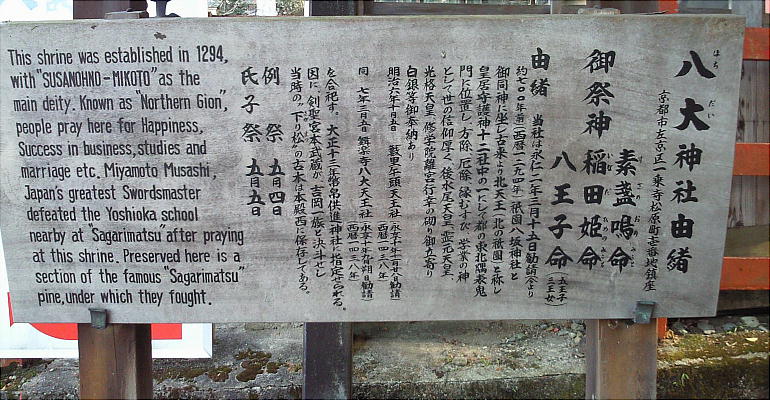 This shrine was established in 1294,
with "SUSANOHNO-MIKOTO" as the
main deity. Known as "Northern Gion",
people pray here for Happiness,
Success in business, studies and
marriage etc. Miyamoto Musashi,
Japan's greatest Swordsmaster
defeated the Yoshioka school
nearby at "Sagarimatsu" after praying
at this shrine. Preserved here is a
section of the famous "Sagarimatsu"
pine, under which they fought.
八大神社由緒
はちだい
京都市左京区一乗寺松原町壱番地鎮座
御祭神 素盞嗚命
すさのおのみこと
稲田姫命
いなだひめのみこと
八王子命(五王子 三王女)
由緒 当社は永仁二年三月十五日勧請(今より
約七〇〇年前)西暦一二九四年 祇園八坂神社と
御同神に坐し古来より北天王(北の祇園)と称し
皇居守護神十二社中の一にして都の東北隅表鬼
門に位置し、方除、厄除、縁むすび、学業の神
として世の信仰厚く、後水尾天皇、霊元天皇
光格天皇、修学院離宮行幸の砌り御立寄り
白銀等御奉納あり
明治六年十月五日 藪里牛頭天王社 永享十二年 西暦一四 勧請
同 七年三月五日 饒楽寺八大天王社 永享十年 朔日勧請 西暦一四三八年
を合祀す。大正十三年幣帛供進神社に指定せられる。
因に、剣聖宮本武蔵が、吉岡一族と決斗せし
当時の"下り松"の古木は本殿西に保存してある。
例祭 五月四日
氏子祭 五月五日